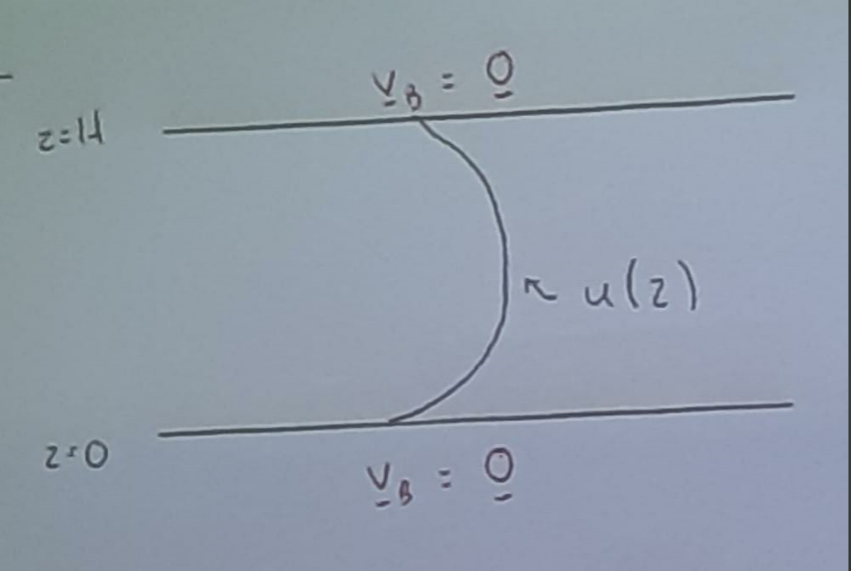 v_B = 0
z=H
u(z)
z=0
v_B = 0